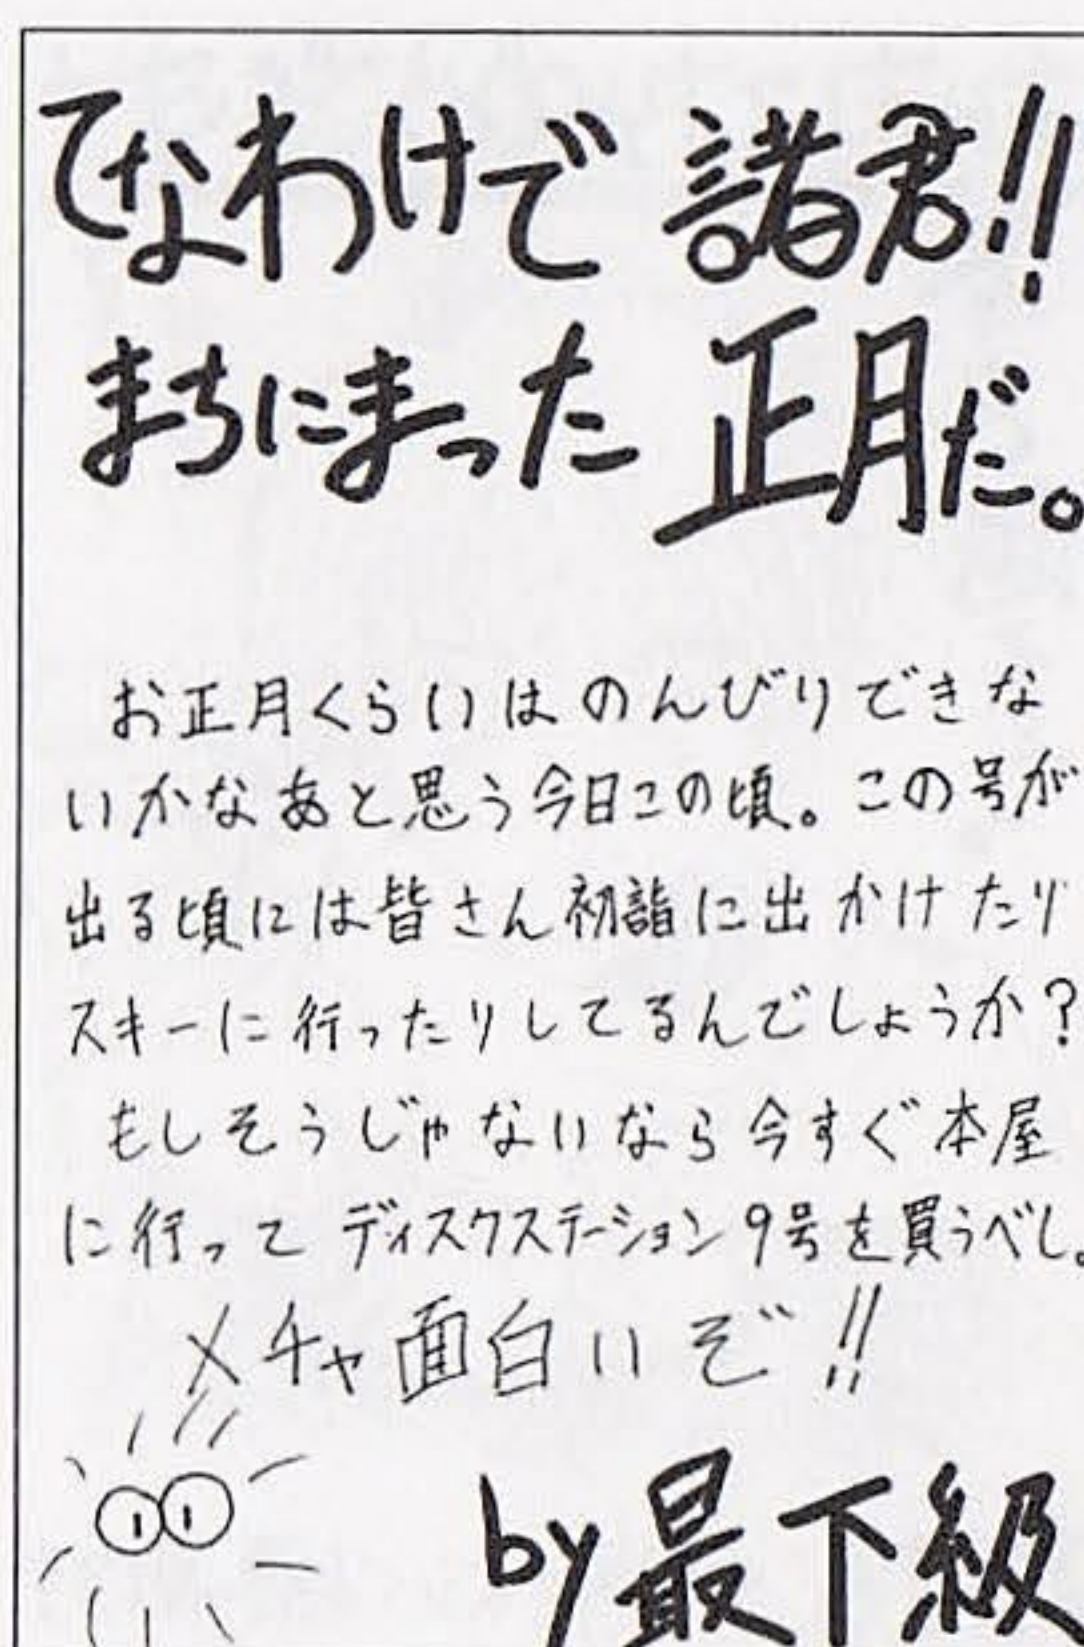 てなわけで 諸君!!
まちにまった 正月だ。
お正月くらいはのんびりできな
いかなあと思う今日この頃。この号が
出る頃には皆さん初詣に出かけたり
スキーに行ったりしてるんでしょうか?
もしそうじゃないなら今すぐ本屋
に行って ディスクステーション9号を買うべし。
メチャ面白いぞ!!
by 最下級